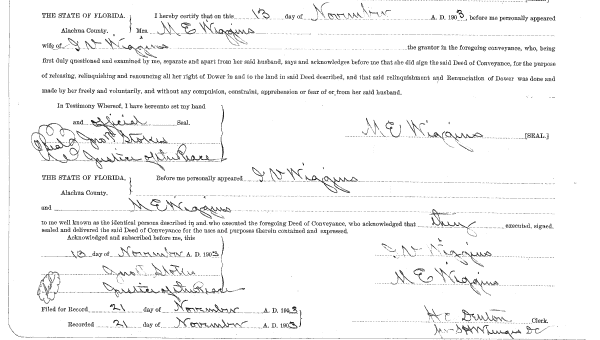 THE STATE OF FLORIDA, I hereby certify that on this 13 day of November A. D. 1903, before me personally appeared
Alachua County. Mrs. M E Wiggins
wife of I V Wiggins the grantor in the foregoing conveyance, who, being
first duly questioned and examined by me, separate and apart from her said husband, says and acknowledges before me that she did sign the said Deed of Conveyance, for the purpose
of releasing, relinquishing and renouncing all her right of Dower in and to the land in said Deed described, and that said relinquishment and Renunciation of Dower was done and
made by her freely and voluntarily, and without any compulsion, constraint, apprehension or fear of or from her said husband.
In Testimony Whereof, I have hereunto set my hand
and official Seal.
Jno T. Stokes
Justice of the Peace
M E Wiggins [SEAL.]
THE STATE OF FLORIDA, Before me personally appeared I V Wiggins
Alachua County.
and M E Wiggins
to me well known as the identical persons described in and who executed the foregoing Deed of Conveyance, who acknowledged that they executed, signed,
sealed and delivered the said Deed of Conveyance for the uses and purposes therein contained and expressed.
Acknowledged and subscribed before me, this
13 day of November A. D. 1903
Jno T. Stokes
Justice of the Peace
I V Wiggins
M E Wiggins
Filed for Record 21 day of November A. D. 1903
Recorded 21 day of November A. D. 1903
H C Denton Clerk.
D C